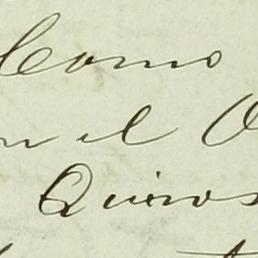 Como
n el
Quiros